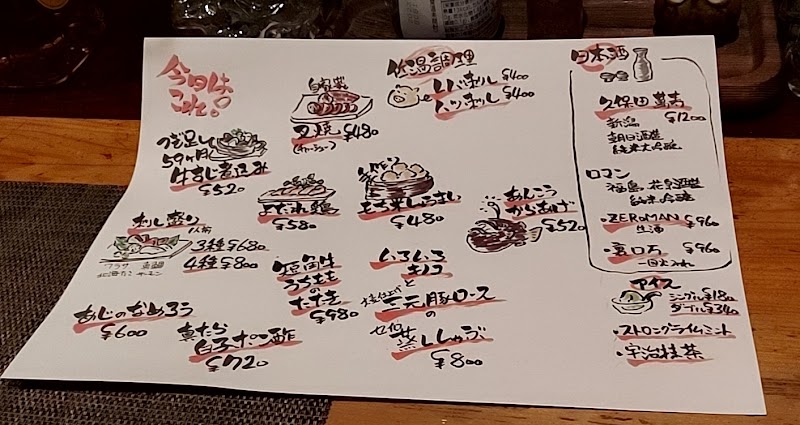 今日は
これ。
自家製
叉焼 ¥480
(チャーシュー)
低温調理
レバ刺し ¥400
ハツ刺し ¥400
つぎ足し
59ヶ月
牛すじ煮込み
¥520
よだれ鶏
¥580
もち米しゅうまい
¥480
あんこう
からあげ
¥520
刺し盛り
1人前
3種 ¥680
4種 ¥800
真鯛
サーモン
短角牛
うちももの
たたき
¥980
いろいろ
キノコ
と
三元豚ロース
の
蒸ししゃぶ
¥800
あじのなめろう
¥600
真たら
白子ポン酢
¥720
日本酒
久保田 萬寿
¥1200
新潟
朝日酒造
純米大吟醸
ロマン
福島 花泉酒造
純米吟醸
・ZEROMAN ¥960
生酒
・裏ロ万 ¥960
一回火入れ
アイス
シングル ¥180
ダブル ¥340
・ストロングライムミント
・宇治抹茶